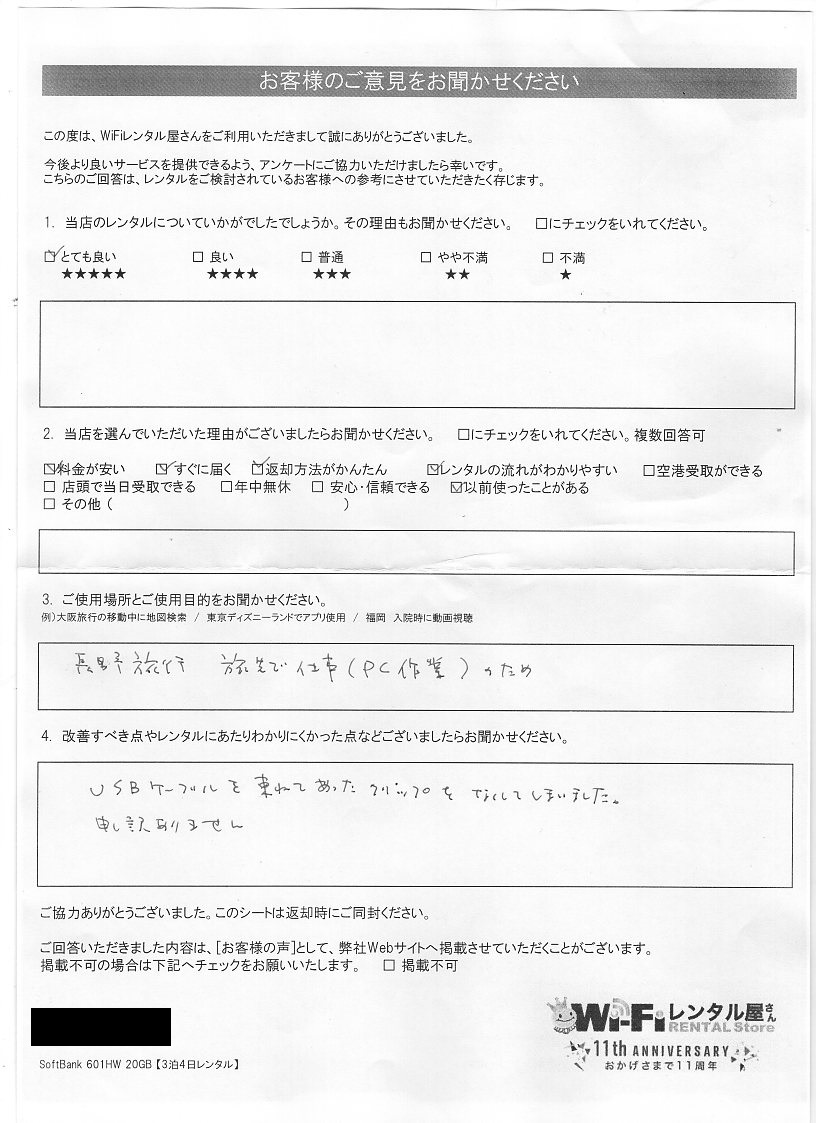 お客様のご意見をお聞かせください
この度は、WiFiレンタル屋さんをご利用いただきまして誠にありがとうございました。
今後より良いサービスを提供できるよう、アンケートにご協力いただけましたら幸いです。
こちらのご回答は、レンタルをご検討されているお客様への参考にさせていただきたく存じます。
1. 当店のレンタルについていかがでしたでしょうか。その理由もお聞かせください。 □にチェックをいれてください。
☑とても良い □ 良い □ 普通 □ やや不満 □ 不満
★★★★★ ★★★★ ★★★ ★★ ★
2. 当店を選んでいただいた理由がございましたらお聞かせください。 □にチェックをいれてください。複数回答可
☑料金が安い ☑すぐに届く ☑返却方法がかんたん ☑レンタルの流れがわかりやすい □空港受取ができる
□ 店頭で当日受取できる □年中無休 □ 安心・信頼できる ☑以前使ったことがある
□ その他 ( )
3. ご使用場所とご使用目的をお聞かせください。
例)大阪旅行の移動中に地図検索 / 東京ディズニーランドでアプリ使用 / 福岡 入院時に動画視聴
長野旅行 旅先で仕事(PC作業)のため
4. 改善すべき点やレンタルにあたりわかりにくかった点などございましたらお聞かせください。
USBケーブルを束ねてあったクリップをなくしてしまいました。
申し訳ありません
ご協力ありがとうございました。このシートは返却時にご同封ください。
ご回答いただきました内容は、[お客様の声]として、弊社Webサイトへ掲載させていただくことがございます。
掲載不可の場合は下記へチェックをお願いいたします。 □ 掲載不可
Wi-Fiレンタル屋さん
RENTAL Store
11th ANNIVERSARY
おかげさまで11周年
SoftBank 601HW 20GB【3泊4日レンタル】